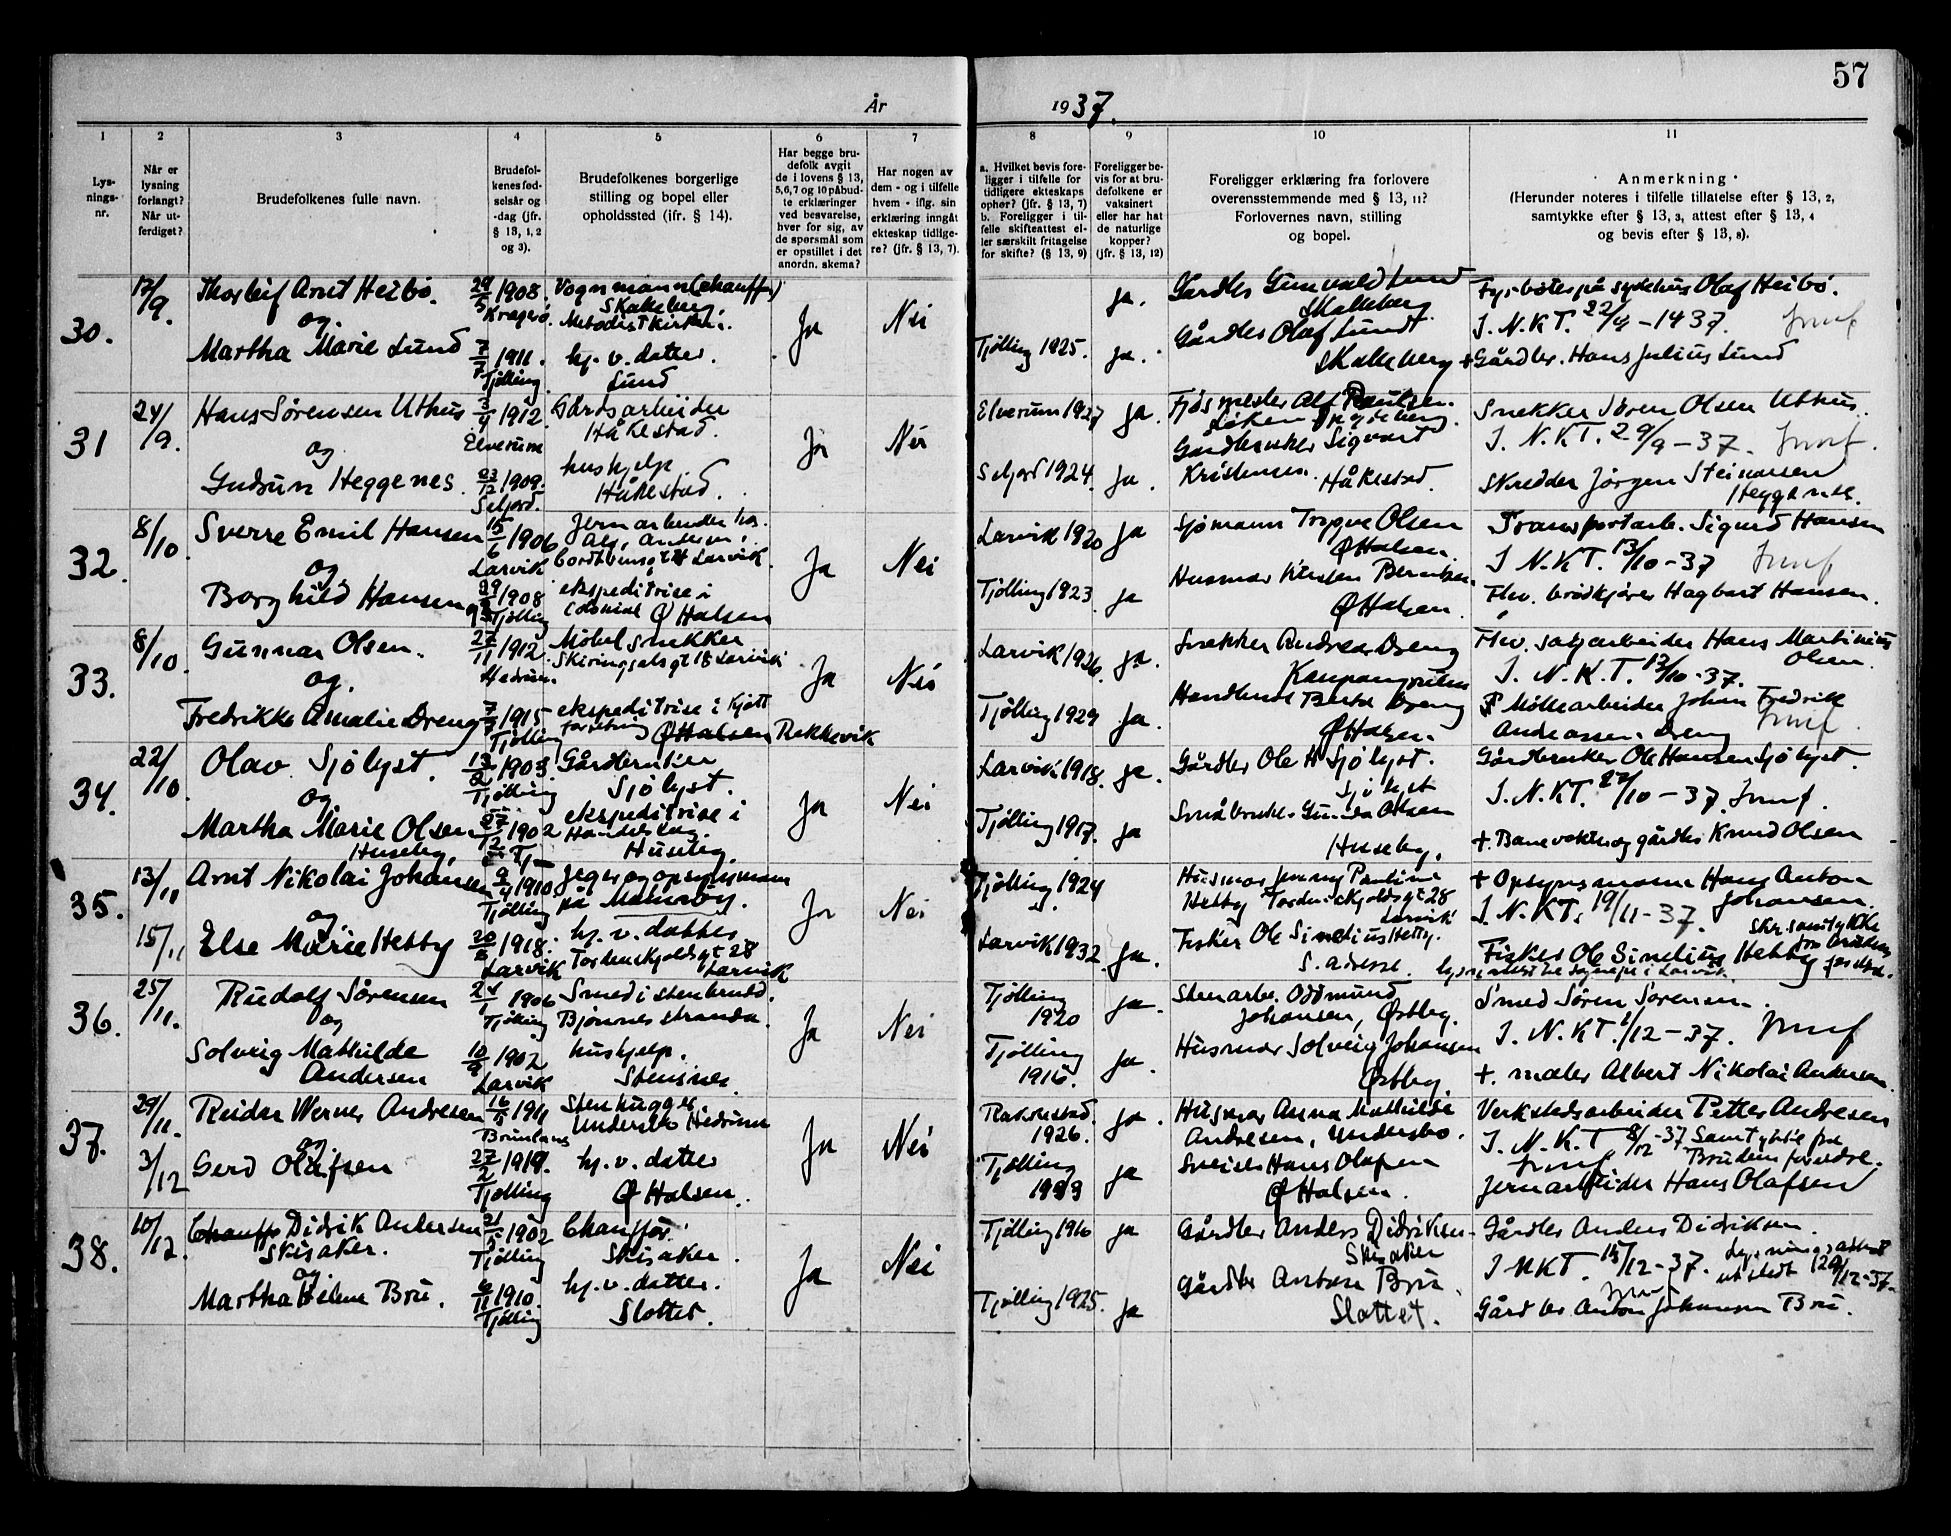 57
År
1937.
1 2 3 4 5 6 7 8 9 10 11
Lys-
nings-
nr.
Når er
lysning
forlangt?
Når ut-
ferdiget?
Brudefolkenes fulle navn.
Brudefol-
kenes fød-
selsår og
-dag (jfr.
§ 13, 1, 2
og 3).
Brudefolkenes borgerlige
stilling og bopel eller
opholdssted (ifr. § 14).
Har begge bru-
defolk avgit
de i lovens § 13,
5,6,7 og 10 påbud-
te erklæringer
ved besvarelse,
hver for sig, av
de spørsmål som
er opstillet i det
anordn. skema?
Har nogen av
dem - og i tilfelle
hvem - iflg. sin
erklæring inngåt
ekteskap tidlige-
re? (jfr. § 13, 7).
a. Hvilket bevis fore-
ligger i tilfelle for
tidligere ekteskaps
ophør? (jfr. § 13, 7)
b. Foreligger i til-
felle skifteattest el-
ler særskilt fritagelse
for skifte? (§ 13, 9)
Foreligger be-
vis for at bru-
defolkene er
vaksinert
eller har hat
de naturlige
kopper?
(jfr. § 13, 12)
Foreligger erklæring fra forlovere
overensstemmende med § 13, 11?
Forlovernes navn, stilling
og bopel.
Anmerkning
(Herunder noteres i tilfelle tillatelse efter § 13, 2,
samtykke efter § 13, 3, attest efter § 13, 4
og bevis efter § 13, 8).
30.
17/9.
Thorleif Arnt Heibø.
og
Martha Marie Lund
29/5 1908.
Kragerø
7/7 1911.
Tjølling
Vognmann (chauffør)
Skalleberg.
Metodistkirken.
hj. v. datter.
Lund
Ja
Nei
Tjølling 1925.
ja.
ja.
Gårdbr Gunvald Lund
Skalleberg.
Gårdbr Olaf Lund
Skalleberg
Fyrbøter på sykehus Olaf Heibø.
I. N. K T. 22/9 - 1937.
+ Gårdbr. Hans Julius Lund
31
24/9.
Hans Sørensen Uthus
og
Gudrun Heggenes
3/9 1912
Elverum
23/12 1909.
Seljord.
Gårdsarbeider
Håkestad.
hushjelp
Håkestad.
Ja
Nei
Elverum 1927
Seljord 1924.
ja.
Ja.
Fjøsmester Alf Paulsen.
Gårdbruker Sigvart
Kristensen. Håkestad.
Snekker Søren Olsen Uthus.
I. N. K T. 29/9 - 37.
Skredder Jørgen Steinarsen
Heggenes.
32.
8/10.
Sverre Emil Hansen
og
Borghild Hansen
15/6 1906
Larvik
1908
Tjølling
Jernarbeider hos
Alf. Andersen,
Larvik.
ekspeditrise i
colonial Ø Halsen
Ja
Nei
Larvik 1920
Tjølling 1923.
ja
ja
Sjømann Trygve Olsen
Ø Halsen.
Husmor Kirsten Berntsen.
Ø Halsen.
Transportarb. Sigurd Hansen
I N. K T. 13/10 - 37
Fhv. brødkjører Hagbart Hansen.
33.
8/10.
Gunnar Olsen.
og.
Fredrikke Amalie Dreng
27/11 1912
Hedrum.
1915
Tjølling
Møbelsnekker
Skiringssalsgt 18 Larvik
ekspeditrise i Kjøtt
forretning Ø Halsen Rekkevik
Ja
Nei
Larvik 1926.
Tjølling 1929
ja.
ja.
Snekker Andreas Dreng
Handlende Dreng
Ø Halsen.
Fhv. sagarbeider Hans Martinius
Olsen.
I. N. K. T. 13/10 - 37.
Møllearbeider Johan Fredrik
Andreassen Dreng
34.
22/10
Olav Sjølyst.
og.
Martha Marie Olsen
Huseby.
13/2 1903.
Tjølling
1902
Gårdbruker
Sjølyst.
ekspeditrise i
Handelslag.
Huseby.
Ja
Nei
Larvik 1918.
Tjølling 1917.
ja.
ja
Gårdbr Ole H Sjølyst.
Sjølyst
Småbruker Gunda Olsen
Huseby.
Gårdbruker Ole Hansen Sjølyst.
I. N. K T. 27/10 - 37.
+ Banevokter og gårdbr Knud Olsen
35.
13/11
15/11
Arnt Nikolai Johansen
og
Else Marie Hetty
9/4 1910
Tjølling
1918.
Larvik
Jeger og opsynsmann
på Malmøy.
hj. v. datter
Tordenskjoldsgt 28
Larvik
Ja
Nei
Tjølling 1924
Larvik 1932.
Ja.
Husmor Jenny Pauline
Hetty Tordenskjoldsgt 28
Larvik
Fisker Ole Sinelius Hetty.
s. adresse.
+ Opsynsmann Hans Anton
Johansen.
I. N. K T. 19/11 - 37.
Skr. samtykke
fra brudens
Fisker Ole Sinelius Hetty
36.
25/11.
Rudolf Sørensen
og
Solveig Mathilde
Andersen
24/1 1906
Tjølling
10/9 1902
Larvik
Smed i stenbrudd.
Bjønnesstranda.
hushjelp.
Stensnes.
Ja
Nei
Tjølling
1920
Tjølling
1916.
ja.
ja.
Stenarb. Oddmund
Johansen, Østby.
Husmor Solveig Johansen
Østby.
Smed Søren Sørensen.
I. N. K T. 1/12 - 37.
+ maler Albert Nikolai Andersen.
37.
29/11.
3/12
Reidar Werner Andresen
og
Gerd Olafsen
16/5 1911
Brunlanes
27/2 1919.
Tjølling
Stenhugger
Undersbo Hedrum
hj. v. datter
Ø Halsen.
Ja
Nei
1926.
Tjølling
1933
ja.
ja
Husmor Anna Mathilde
Andresen, Undersbo.
Sveiser Hans Olafsen
Ø Halsen.
Verkstedsarbeider Petter Andresen
I. N. K. T 8/12 - 37 Samtykke fra
Brudens foreldre.
Jernarbeider Hans Olafsen
38.
10/12.
Didrik Andersen
Skisaker.
og
Martha Helene Bru.
1902
Tjølling
6/11 1910.
Tjølling
Chauffør.
Skisaker
hj. v. datter.
Slottet.
Ja
Nei
Tjølling 1916
Tjølling 1925.
ja
ja
Gårdbr Anders Didriksen
Skisaker
Gårdbr Anton Bru.
Slottet.
Gårdbr Anders Didriksen.
I N K T. 15/12 - 37. Lysningsattest
utstedt /12-37.
Gårdbr Anton Johansen Bru.